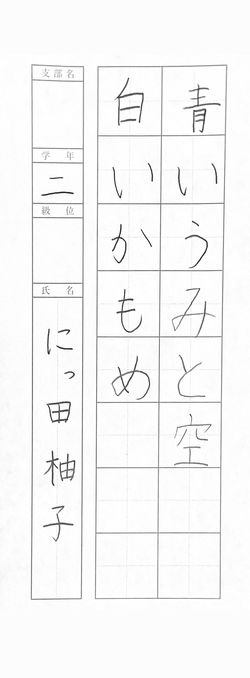 青いうみと空
白いかもめ
支部名
学年
二
級位
氏名
にっ田柚子